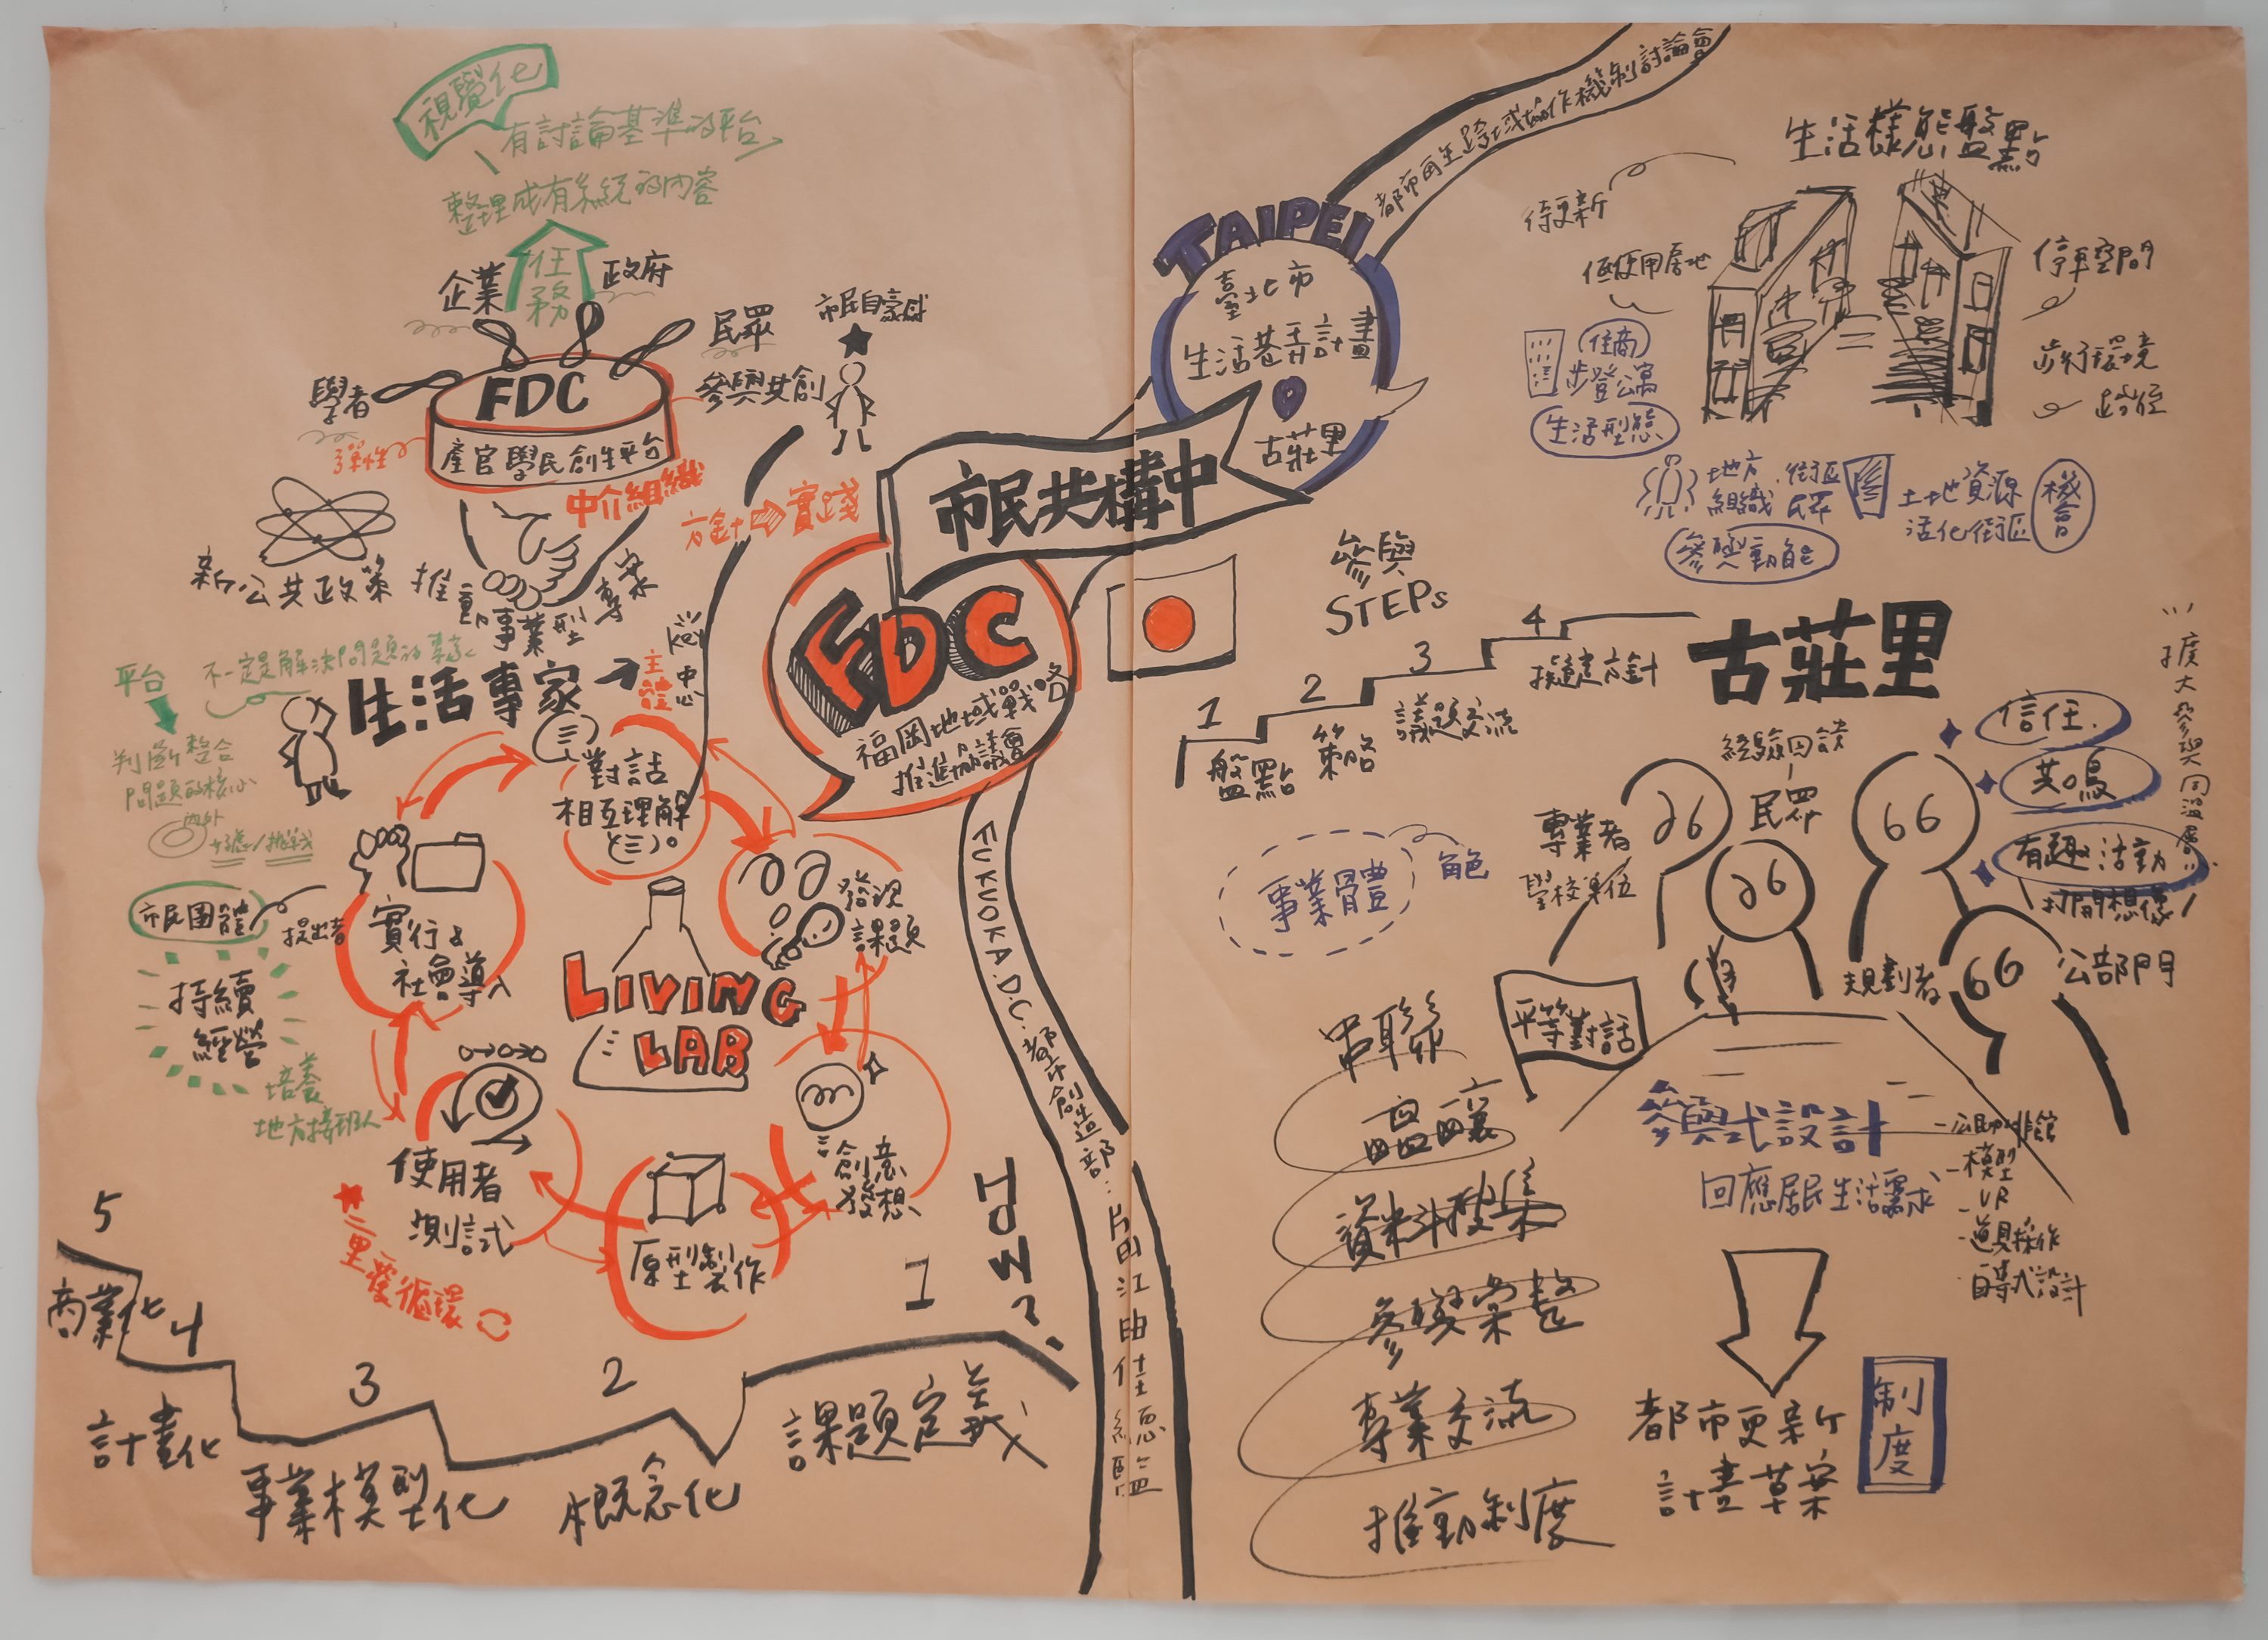 視覺化
有討論基準的平台
整理成有系統的內容
任務
企業
政府
民眾
學者
參與共創
市民自豪感
FDC
產官學民創生平台
彈性
中介組織
方針
實踐
新公共政策
推動事業型專案
平台
不一定是解決問題的專家
生活專家
主體
Key
中心
判斷整合
問題的核心
內外
對話
相互理解
發現
課題
創意
發想
原型製作
使用者
測試
實行&
社會導入
市民團體
提出者
持續
經營
培養
地方接班人
LIVING
LAB
重覆循環
HOW?
1
課題定義
2
概念化
3
事業模型化
4
計畫化
5
商業化
都市再生跨域協作機制討論會
TAIPEI
臺北市
生活巷弄計畫
古莊里
市民共構中
FDC
福岡地域戰略
推進協議會
FUKUOKA.D.C.都市創造部:片田江由佳總監
生活樣態盤點
待更新
低使用房地
停車空間
步行環境
路徑
住商
步登公寓
生活型態
地方
組織
街區
民眾
參與動能
土地資源
活化街區
機會
參與
STEPs
1
盤點
2
策略
3
議題交流
4
擬定方針
古莊里
經驗回談
民眾
專業者
學校單位
規劃者
公部門
信任
共鳴
有趣活動
打開想像
擴大參與同溫層
事業體
角色
平等對話
串聯
醞釀
資料搜集
參與彙整
專業交流
推動制度
參與式設計
回應居民生活需求
-模型
-VR
-道具操作
都市更新
計畫草案
制度